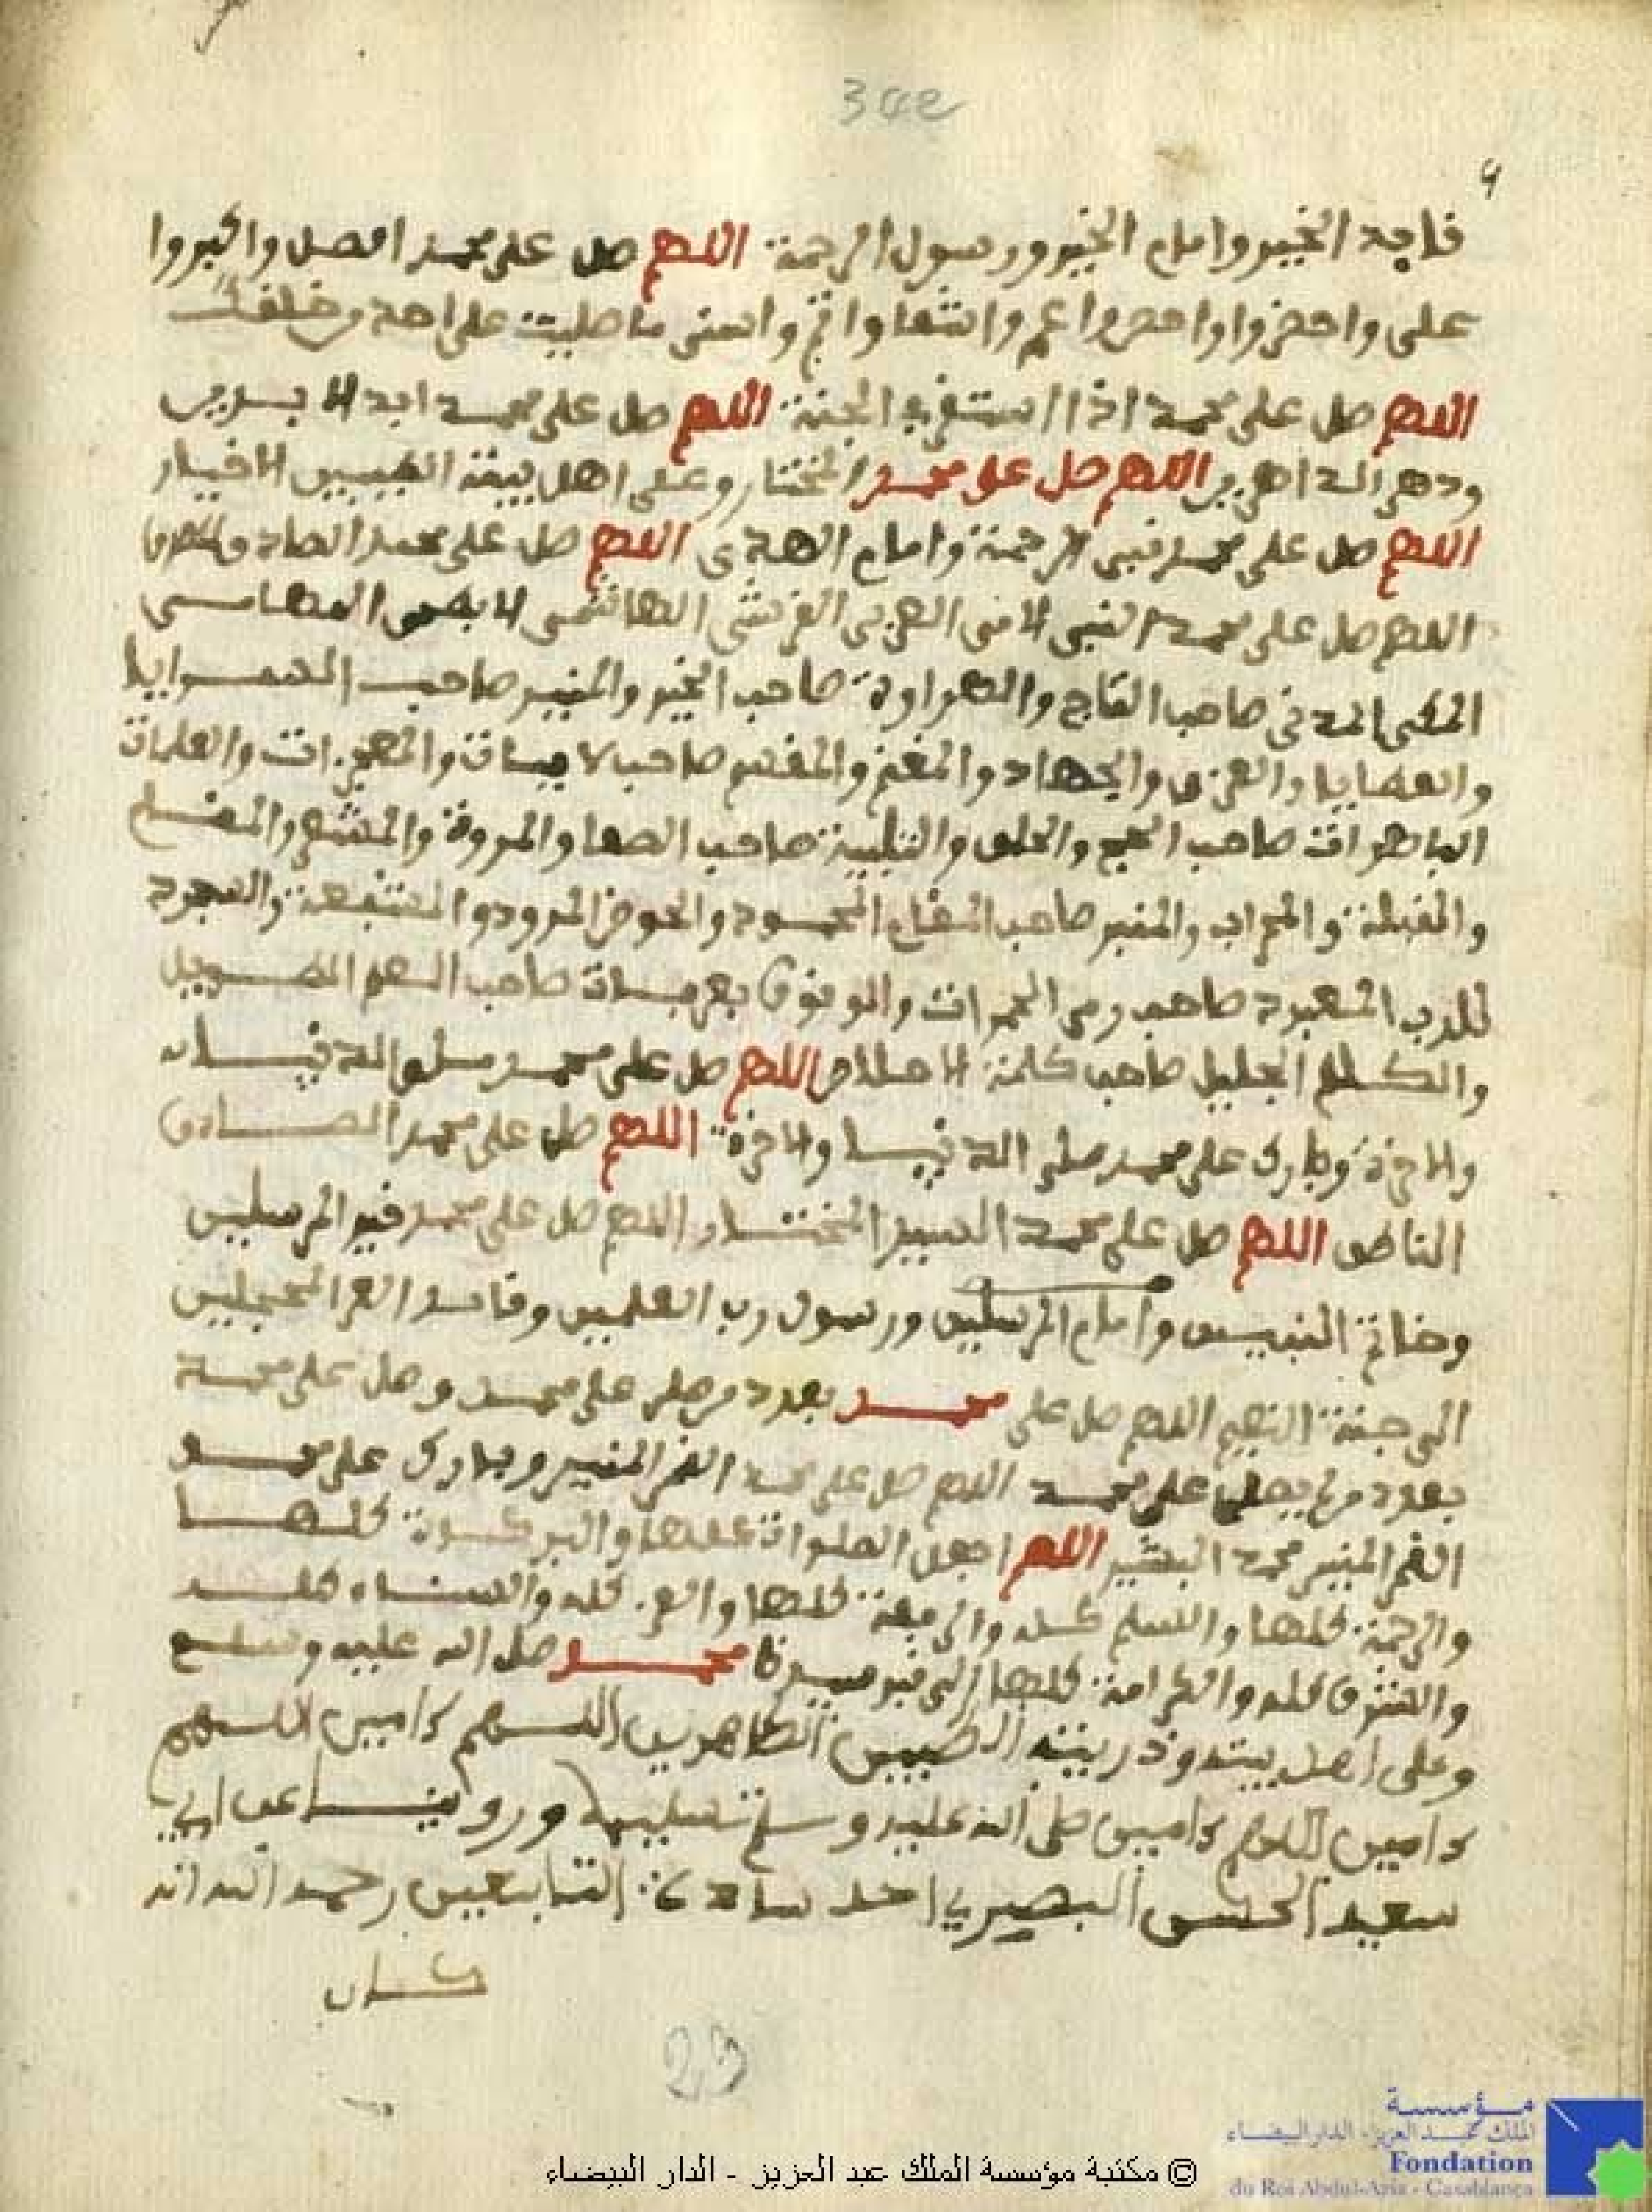 342
9
قايد الخير وامام الخير ورسول الرحمة اللهم صل على محمد افضل واكبر وا
على واحضر وا واحضر وا عم وانتها واتم واسنى ما صليت على احد من خلفك
اللهم صل على محمد اذا استقر في الجنة اللهم صل على محمد ابد الابدين
ودهر الداهرين اللهم صل على محمد المختار وعلى اهل بيته الطيبين الاخيار
اللهم صل على محمد نبي الرحمة وامام الهدى اللهم صل على محمد الصادق
اللهم صل على محمد النبي الامي العربي القرشي الهاشمي الابطحي التهامي
المكي المدني صاحب التاج والهراوة صاحب الخير والمنبر صاحب السرايا
والعطايا والغزو والجهاد والمغنم والمقسم صاحب الايات والمعجزات والعلامات
الباهرات صاحب الحج والحلق والتلبية صاحب الصفا والمروة والمشعر والمقام
والقبلة والمحراب والمنبر صاحب المقام المحمود والحوض المورود والشفعة والسجود
للرب المعبود صاحب رمي الجمرات والوقوف بعرفات صاحب العلم الطويل
والكلام الجليل صاحب كلمة الاخلاص اللهم صل على محمد ملء الدنيا
والاخرة وبارك على محمد ملء الدنيا والاخرة اللهم صل على محمد الصادق
الناطق اللهم صل على محمد السيد المختار اللهم صل على محمد خير المرسلين
وخاتم النبيين وامام المرسلين ورسول رب العلمين وقائد الغر المحجلين
الى جنة النعيم اللهم صل على محمد بعدد من صلى على محمد وصل على محمد
بعدد من لم يصل على محمد اللهم صل على محمد القمر المنير وبارك على محمد
القمر المنير محمد البشير اللهم اجعل الصلوات كلها والبركات كلها
والرحمة كلها والسلام كله والرفعة كلها والعز كله والسناء كله
والشرف كله والكرامة كلها الى قبر سيدنا محمد صلى الله عليه وسلم
وعلى اهل بيته وذريته الطيبين الطاهرين اللهم ءامين اللهم
ءامين اللهم ءامين صلى الله عليه وسلم تسليما وروينا عن ابي
سعيد الحسن البصري احد سادة التابعين رحمه الله انه
كان
25
© مكتبة مؤسسة الملك عبد العزيز - الدار البيضاء
مؤسسة
الملك عبد العزيز - الدار البيضاء
Fondation
du Roi Abdul-Aziz - Casablanca